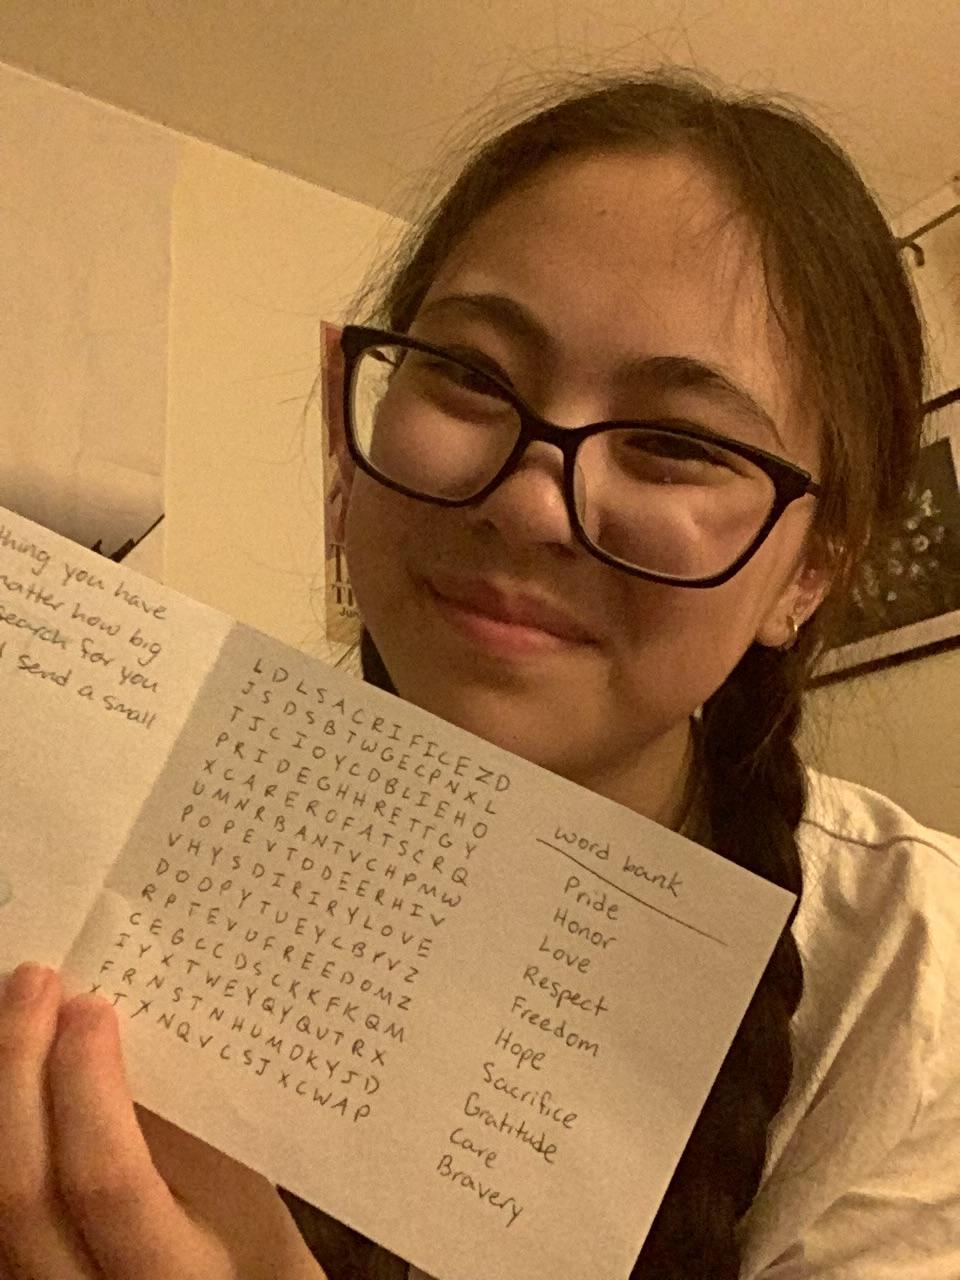 thing you have
matter how big
search for you
send a small
L D L S A C R I F I C E Z D
J S D S B T W G E C P N X L
T J C I O Y C D B L I E H O
P R I D E G H H R E T T G Y
X C A R E R O F A T S C R Q
U M N R B A N T V C H P M W
P O P E V T D D E E R H I V
V H Y S D I R I R Y L O V E
D O D P Y T U E Y C B Y V Z
R P T E V U F R E E D O M Z
C E G C C D S C K K F K Q M
I Y X T W E Y Q Y Q U T R X
F R N S T N H U M D K Y J D
X T X N Q V C S J X C W A P
word bank
Pride
Honor
Love
Respect
Freedom
Hope
Sacrifice
Gratitude
Care
Bravery